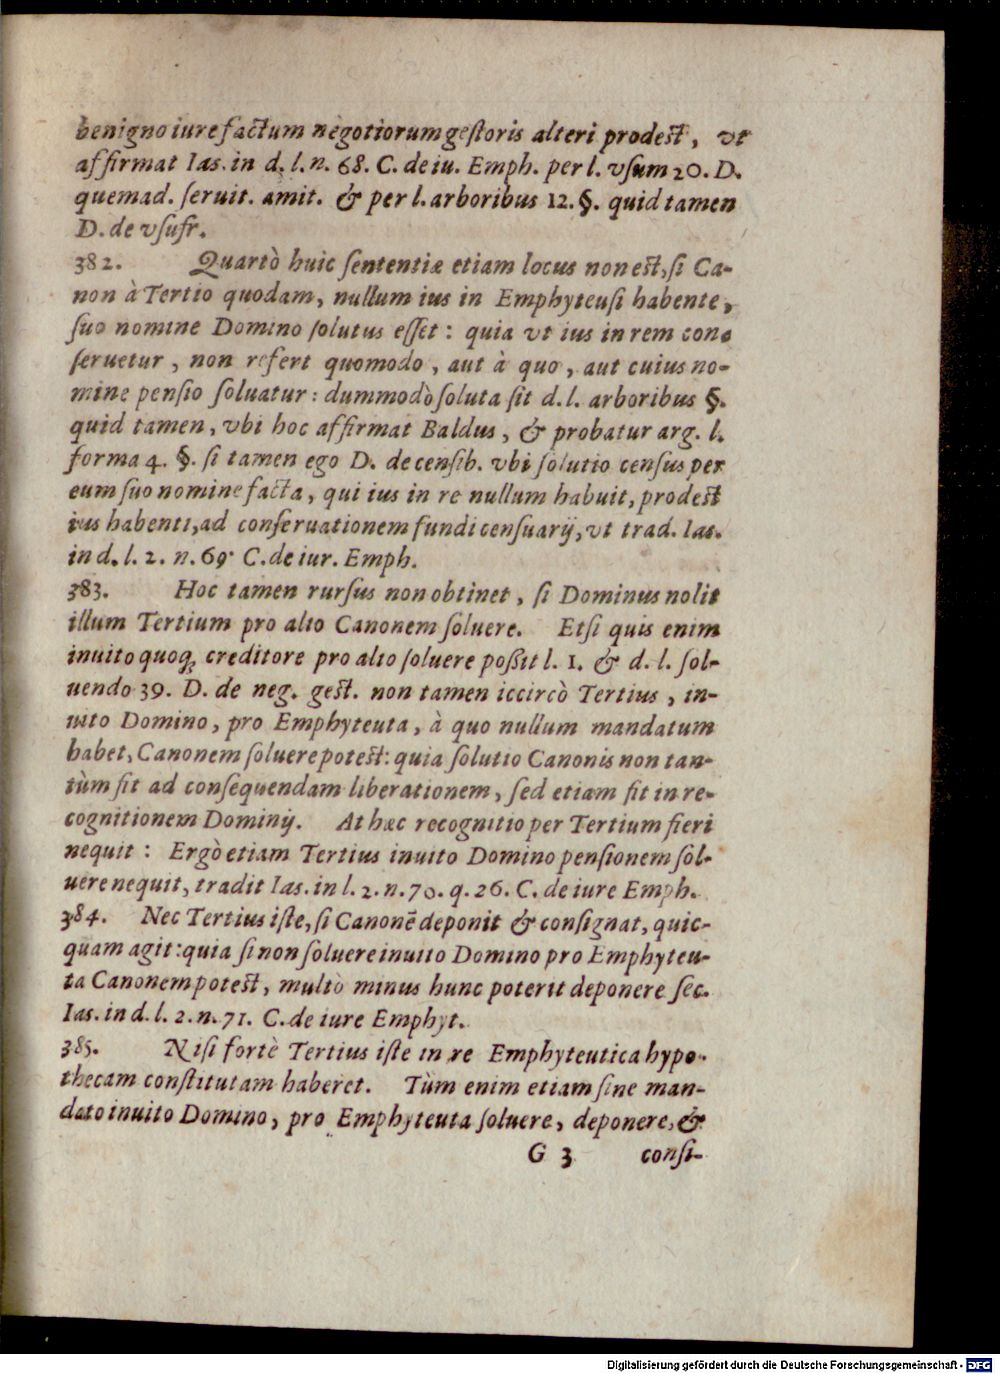 benigno iure factum negotiorum gestoris alteri prodest, vt
affirmat Ias. in d. l. n. 68. C. de iu. Emph. per l. vsum 20. D.
quemad. seruit. amit. & per l. arboribus 12. §. quid tamen
D. de vsufr.
382. Quartò huic sententiæ etiam locus non est, si Ca-
non à Tertio quodam, nullum ius in Emphyteusi habente,
suo nomine Domino solutus esset: quia vt ius in rem con-
seruetur, non refert quomodo, aut à quo, aut cuius no-
mine pensio soluatur: dummodò soluta sit d. l. arboribus §.
quid tamen, vbi hoc affirmat Baldus, & probatur arg. l.
forma 4. §. si tamen ego D. de censib. vbi solutio census per
eum suo nomine facta, qui ius in re nullum habuit, prodest
ius habenti, ad conseruationem fundi censuarij, vt trad. Ias.
in d. l. 2. n. 69. C. de iur. Emph.
383. Hoc tamen rursus non obtinet, si Dominus nolit
illum Tertium pro alto Canonem soluere. Etsi quis enim
inuito quoq; creditore pro alto soluere possit l. 1. & d. l. sol-
uendo 39. D. de neg. gest. non tamen iccircò Tertius, in-
uito Domino, pro Emphyteuta, à quo nullum mandatum
habet, Canonem soluere potest: quia solutio Canonis non tan-
tùm fit ad consequendam liberationem, sed etiam fit in re-
cognitionem Dominij. At hæc recognitio per Tertium fieri
nequit: Ergò etiam Tertius inuito Domino pensionem sol-
uere nequit, tradit Ias. in l. 2. n. 70. q. 26. C. de iure Emph.
384. Nec Tertius iste, si Canonē deponit & consignat, quic-
quam agit: quia si non soluere inuito Domino pro Emphyteu-
ta Canonem potest, multò minus hunc poterit deponere sec.
Ias. in d. l. 2. n. 71. C. de iure Emphyt.
385. Nisi fortè Tertius iste in re Emphyteutica hypo-
thecam constitutam haberet. Tùm enim etiam sine man-
dato inuito Domino, pro Emphyteuta soluere, deponere, &
G 3 consi-
Digitalisierung gefördert durch die Deutsche Forschungsgemeinschaft - DFG